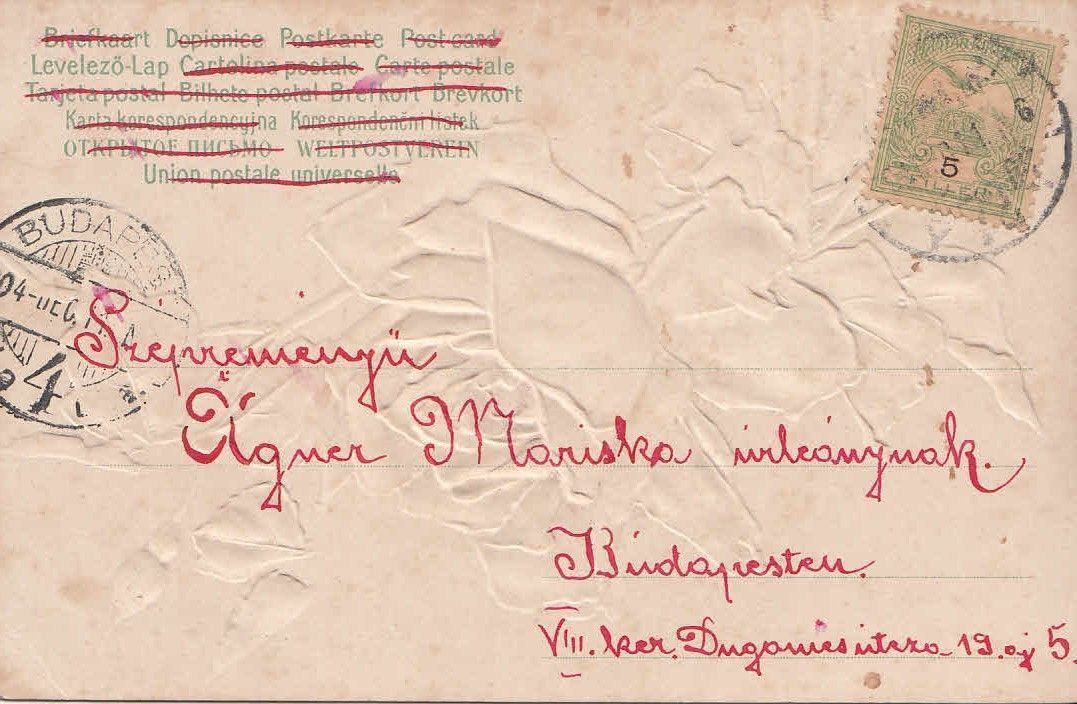 Briefkaart Dopisnice Postkarte Post card
Levelező-Lap Cartolina postale Carte postale
Tarjeta postal Bilhete postal Brefkort Brevkort
Karta korespondencyjna Korespondenčni listek
ОТКРЫТОЕ ПИСЬМО WELTPOSTVEREIN
Union postale universelle
5
BUDAPEST
Szépreményű
Ágner Mariska úrleánynak.
Budapesten.
VIII. ker. Dugonics utcza 19. aj 5.